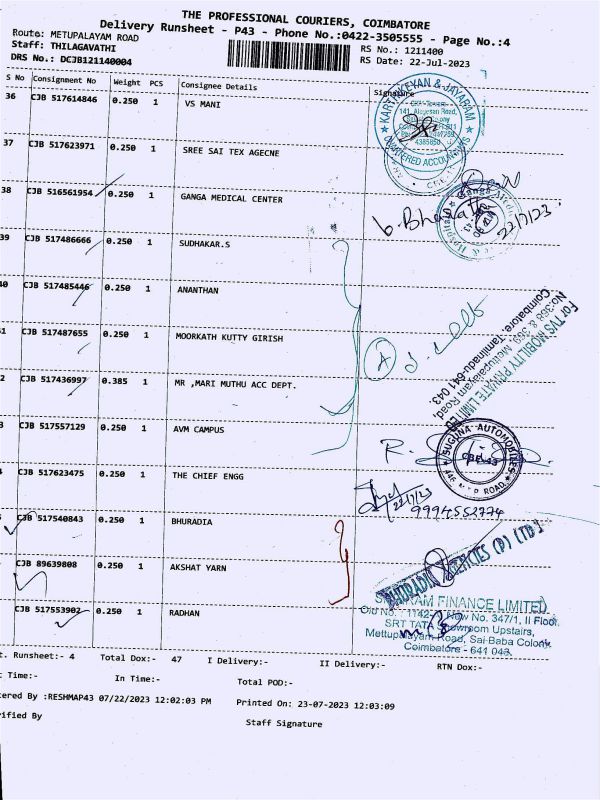 THE PROFESSIONAL COURIERS, COIMBATORE
Delivery Runsheet - P43 - Phone No.:0422-3505555 - Page No.:4
Route: METUPALAYAM ROAD
RS No.: 1211400
Staff: THILAGAVATHI
RS Date: 22-Jul-2023
DRS No.: DCJB121140004
S No Consignment No Weight PCS Consignee Details Signature
36 CJB 517614846 0.250 1 VS MANI
KARTHIKEYAN & JAYARAM
CHARTERED ACCOUNTANTS
37 CJB 517623971 0.250 1 SREE SAI TEX AGECNE
38 CJB 516561954 0.250 1 GANGA MEDICAL CENTER
22/7/23
39 CJB 517486666 0.250 1 SUDHAKAR.S
40 CJB 517485446 0.250 1 ANANTHAN
For TVS MOBILITY PRIVATE LIMITED
No.368 & 369, Mettupalayam Road,
Coimbatore, Tamilnadu-641 043.
41 CJB 517487655 0.250 1 MOORKATH KUTTY GIRISH
A
2 CJB 517436997 0.385 1 MR ,MARI MUTHU ACC DEPT.
3 CJB 517557129 0.250 1 AVM CAMPUS
SUGUNA AUTOMOBILES
CBE-43
CJB 517623475 0.250 1 THE CHIEF ENGG
22/7/23
9994552774
CJB 517540843 0.250 1 BHURADIA
CJB 89639808 0.250 1 AKSHAT YARN
BHURADIA AGENCIES (P) LTD.,
CJB 517553902 0.250 1 RADHAN
SUNDARAM FINANCE LIMITED
Old No. : 1142 New No. 347/1, II Floor,
SRT TATA Showroom Upstairs,
Mettupalayam Road, Sai Baba Colony
Coimbatore - 641 043.
t. Runsheet:- 4 Total Dox:- 47 I Delivery:- II Delivery:- RTN Dox:-
t Time:- In Time:- Total POD:-
tered By :RESHMAP43 07/22/2023 12:02:03 PM Printed On: 23-07-2023 12:03:09
rified By Staff Signature